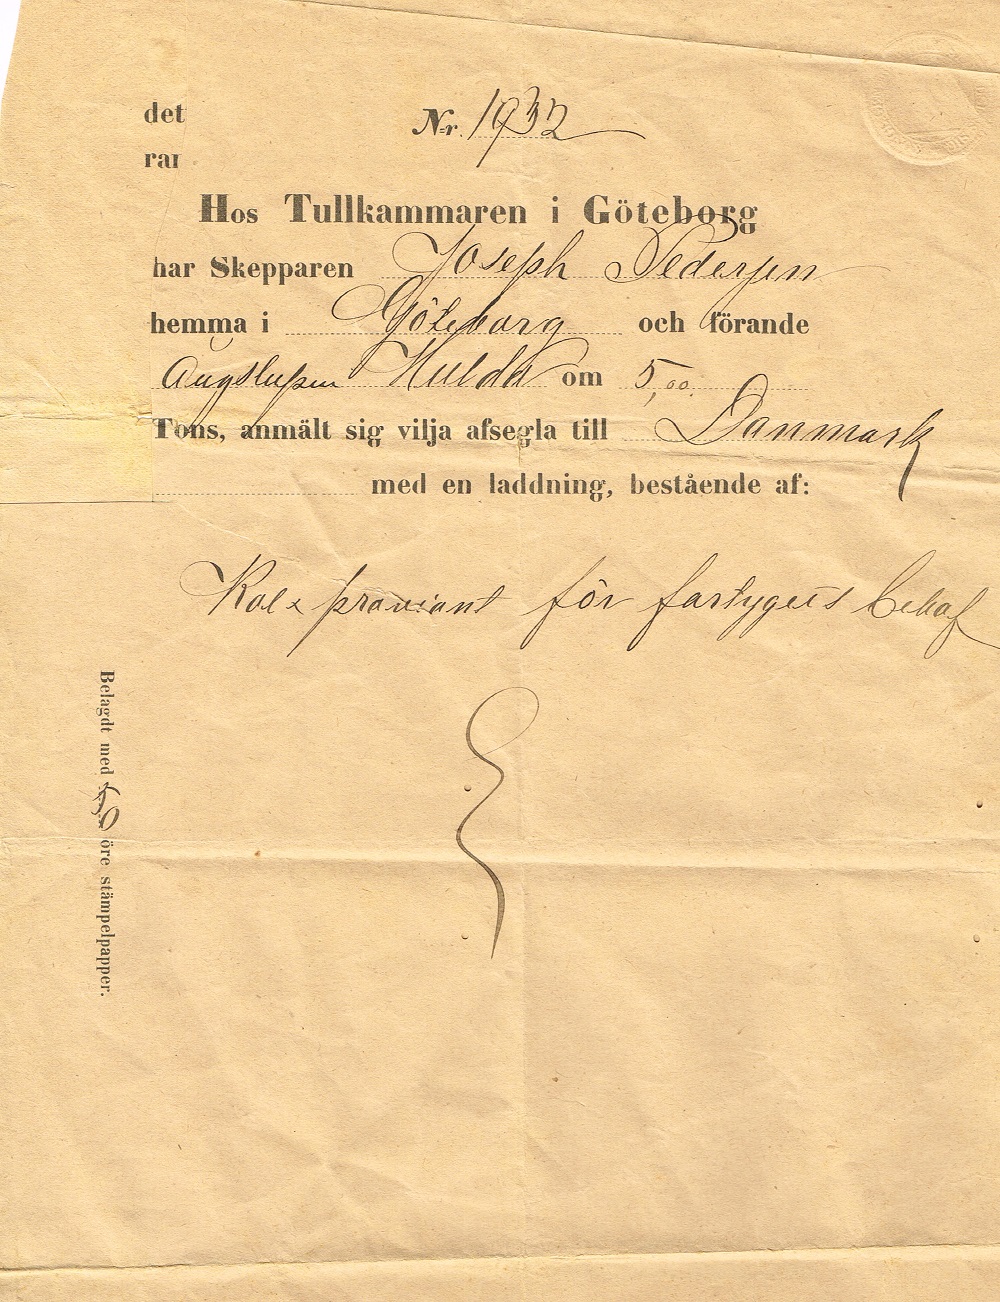 det
Nr. 1932
rar
Hos Tullkammaren i Göteborg
har Skepparen Joseph Pedersen
hemma i Göteborg och förande
Ångslupen Hulda om 5,00
Tons, anmält sig vilja afsegla till Danmark
med en laddning, bestående af:
Kol & proviant för fartygets behof
Belagdt med 50 öre stämpelpapper.